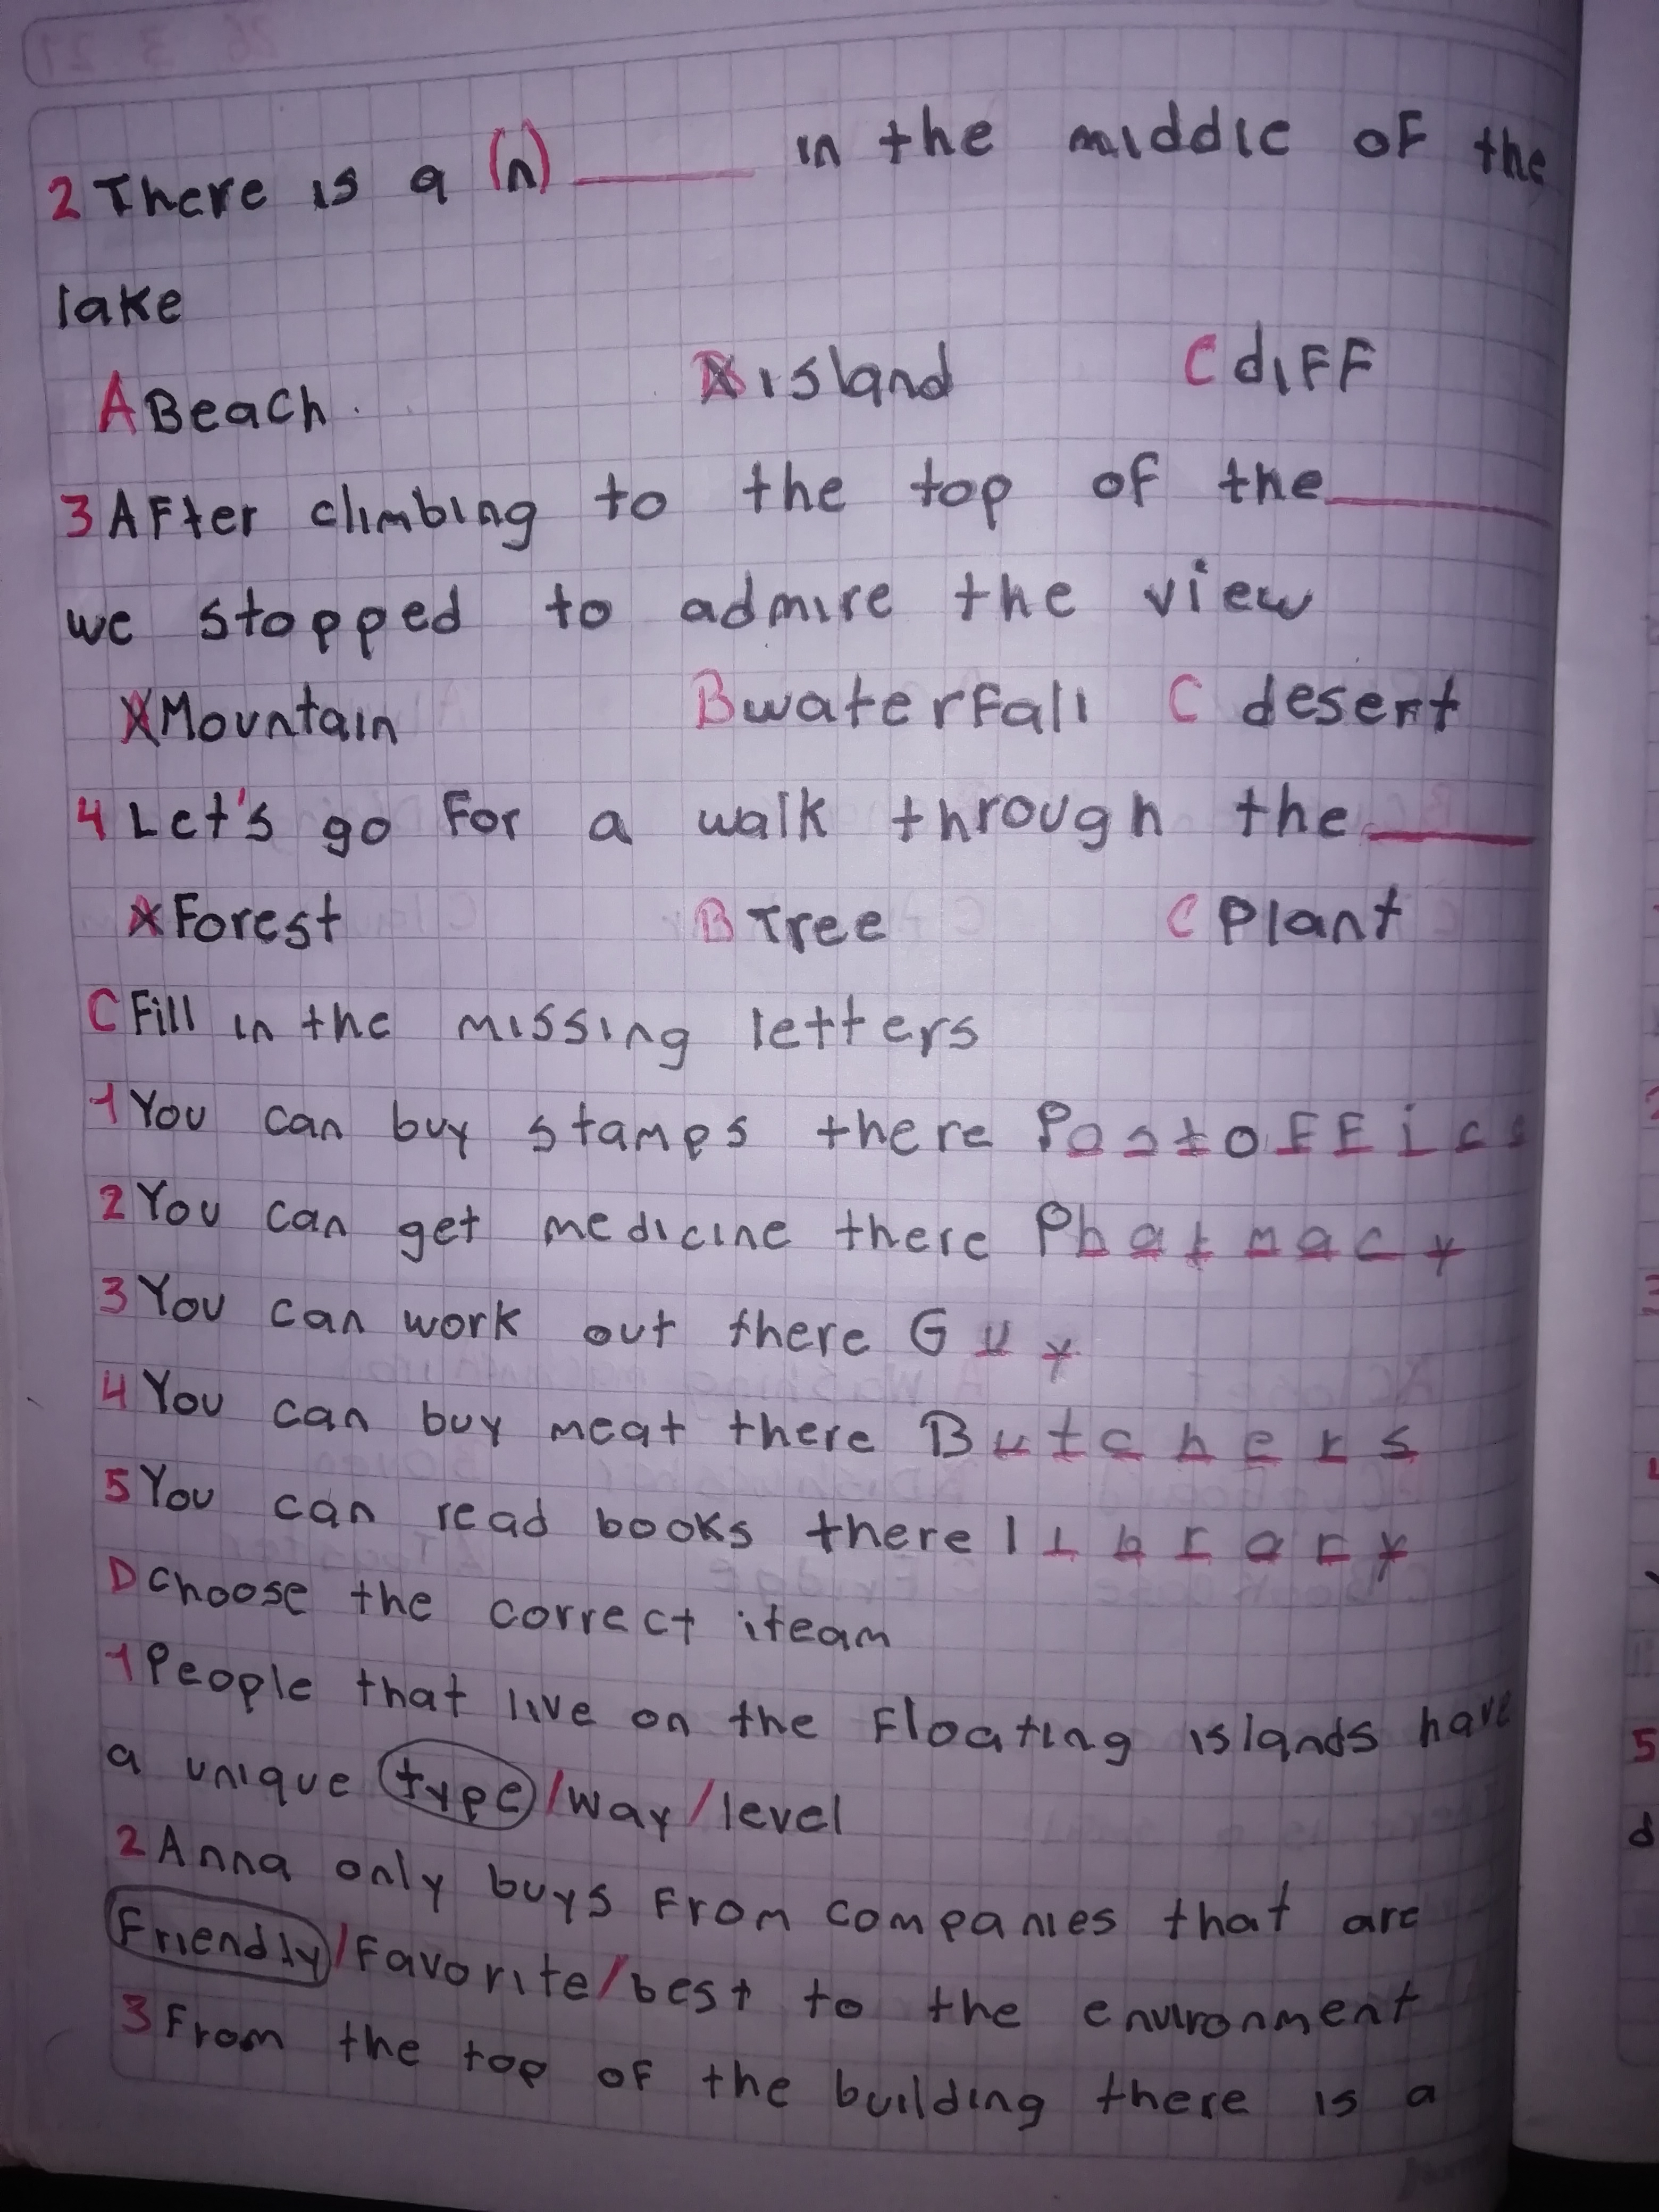 2 There is a (n) ____ in the middle of the
lake
A Beach. B island C diff
3 After climbing to the top of the ____
we stopped to admire the view
A Mountain B waterfall C desert
4 Let's go for a walk through the ____
A Forest B Tree C Plant
C Fill in the missing letters
1 You can buy stamps there Post office
2 You can get medicine there Pharmacy
3 You can work out there Guy
4 You can buy meat there Butchers
5 You can read books there library
D choose the correct iteam
1 People that live on the floating islands have
a unique type/way/level
2 Anna only buys from companies that are
Friendly/favorite/best to the environment
3 From the top of the building there is a